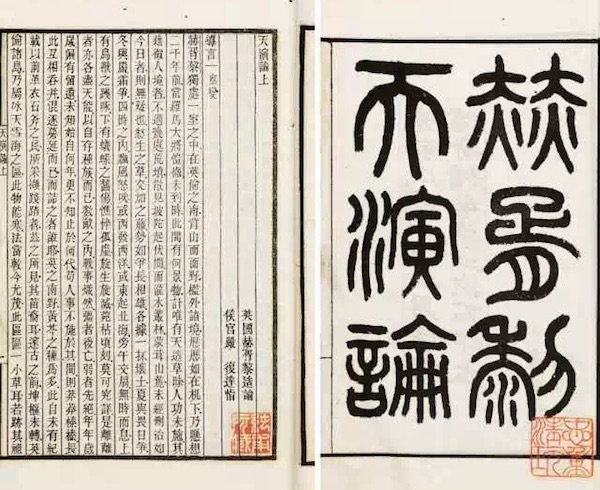 赫胥黎
天演論
天演論上
導言一 察變
英國赫胥黎造論
侯官嚴 復達恉
赫胥黎獨處一室之中在英倫之南背山而面野檻外諸境歷歷如在机下乃懸想
二千年前當羅馬大將愷徹未到時此間有何景物計唯有天造草昧人功未施其
藉徵人境者不過幾處荒墳散見坡陀起伏間而灌木叢林蒙茸山麓未經刪治如
今日者則無疑也怒生之草交加之藤勢如爭長相雄各據一抔壤土夏與畏日爭
冬與嚴霜爭四時之內飄風怒吹或西發西洋或東起北海旁午交扇無時而息上
有鳥獸之踐啄下有蟻蝝之齧傷憔悴孤虛旋生旋滅菀枯頃刻莫可究詳是離離
者亦各盡天能以自存種族而已數畝之內戰事熾然彊者後亡弱者先絕年年歲
歲偏有留遺未知始自何年更不知止於何代苟人事不施於其間則莽莽榛榛長
此互相吞并混逐蔓延而已而詰之者誰耶英之南野黃芩之種為多此自未有紀
載以前革衣石斧之民所采擷踐踏者茲之所見其苗裔耳邃古之前坤樞未轉英
倫諸島乃屬冰天雪海之區此物能寒法當較今尤茂此區區一小草耳若跡其祖
天演論上